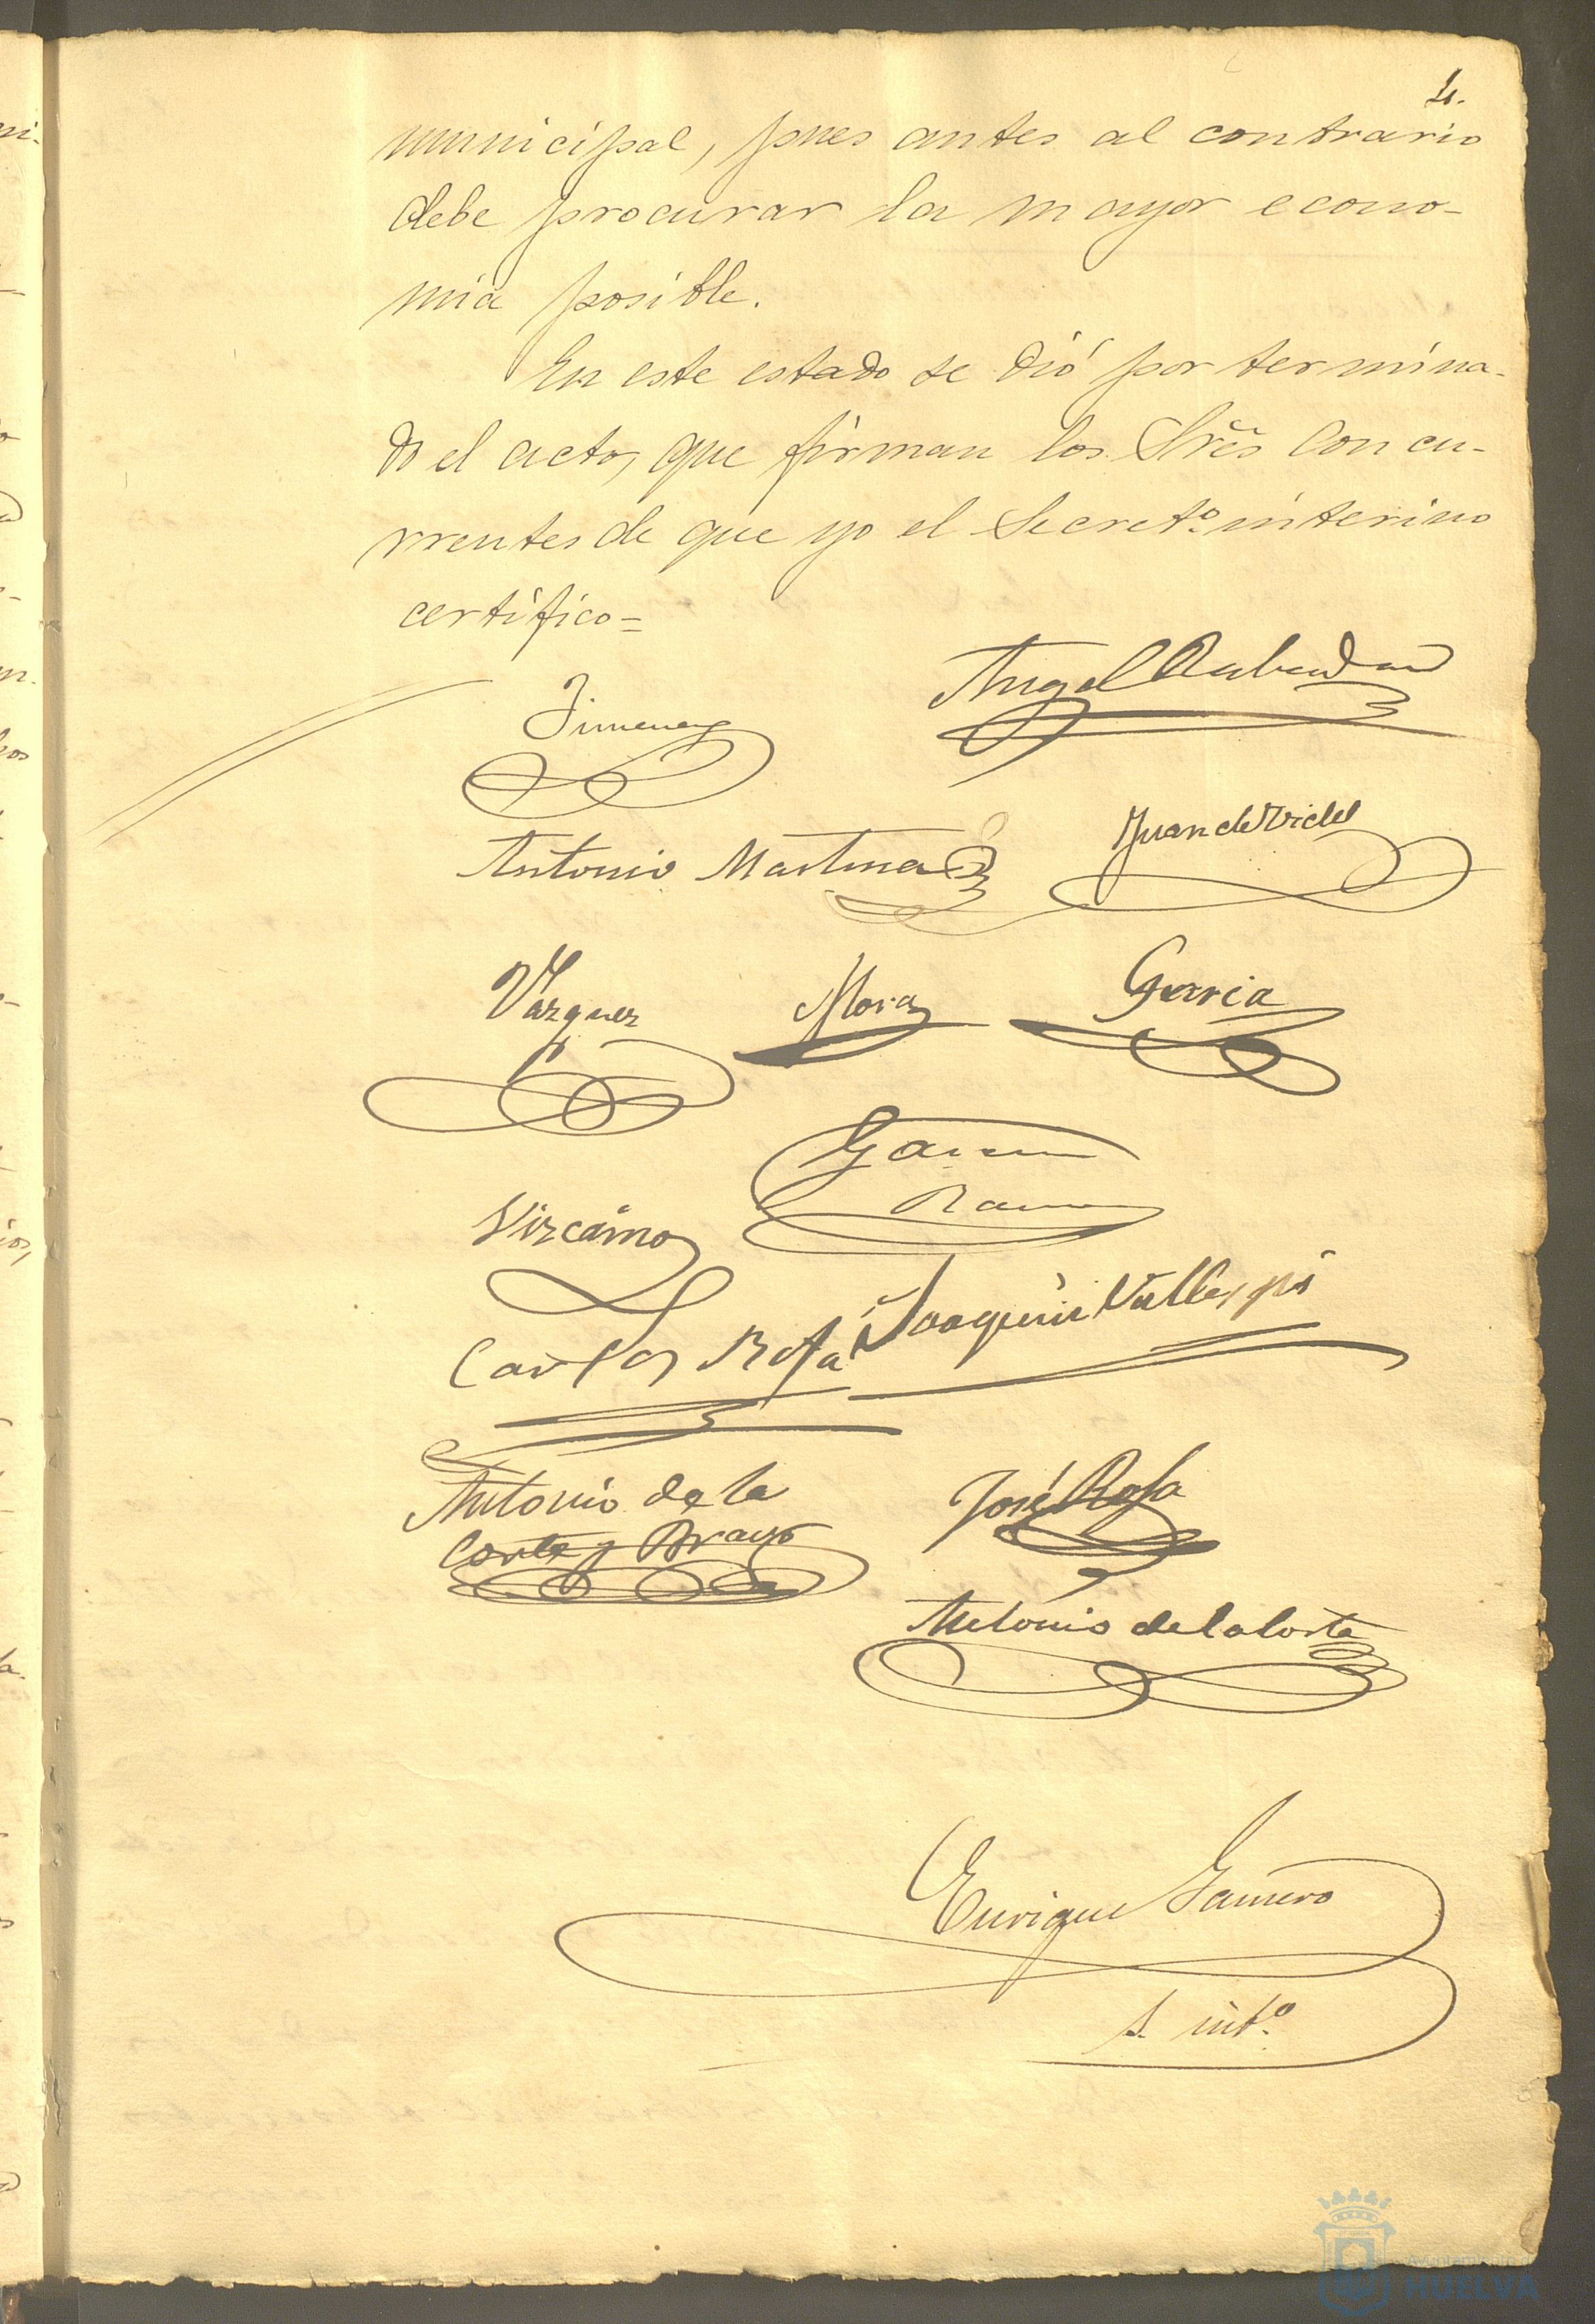 4.
municipal, pues antes al contrario
debe procurar la mayor econo-
mia posible.
En este estado se dió por termina-
do el acto, que firman los Srēs concu-
rrentes de que yo el Secretº interino
certifico=
Jimenez
Angel Rabadan
Antonio Martinez
Juan de Vides
Vazquez
Mora
Garcia
Garcia
Ramos
Vizcaino
Joaquin Vallespí
Carlos Rofa
Antonio de la
Corte y Bravo
José Rofa
Antonio de la Corte
Enrique Gamero
S. intº
Ayuntamiento
HUELVA